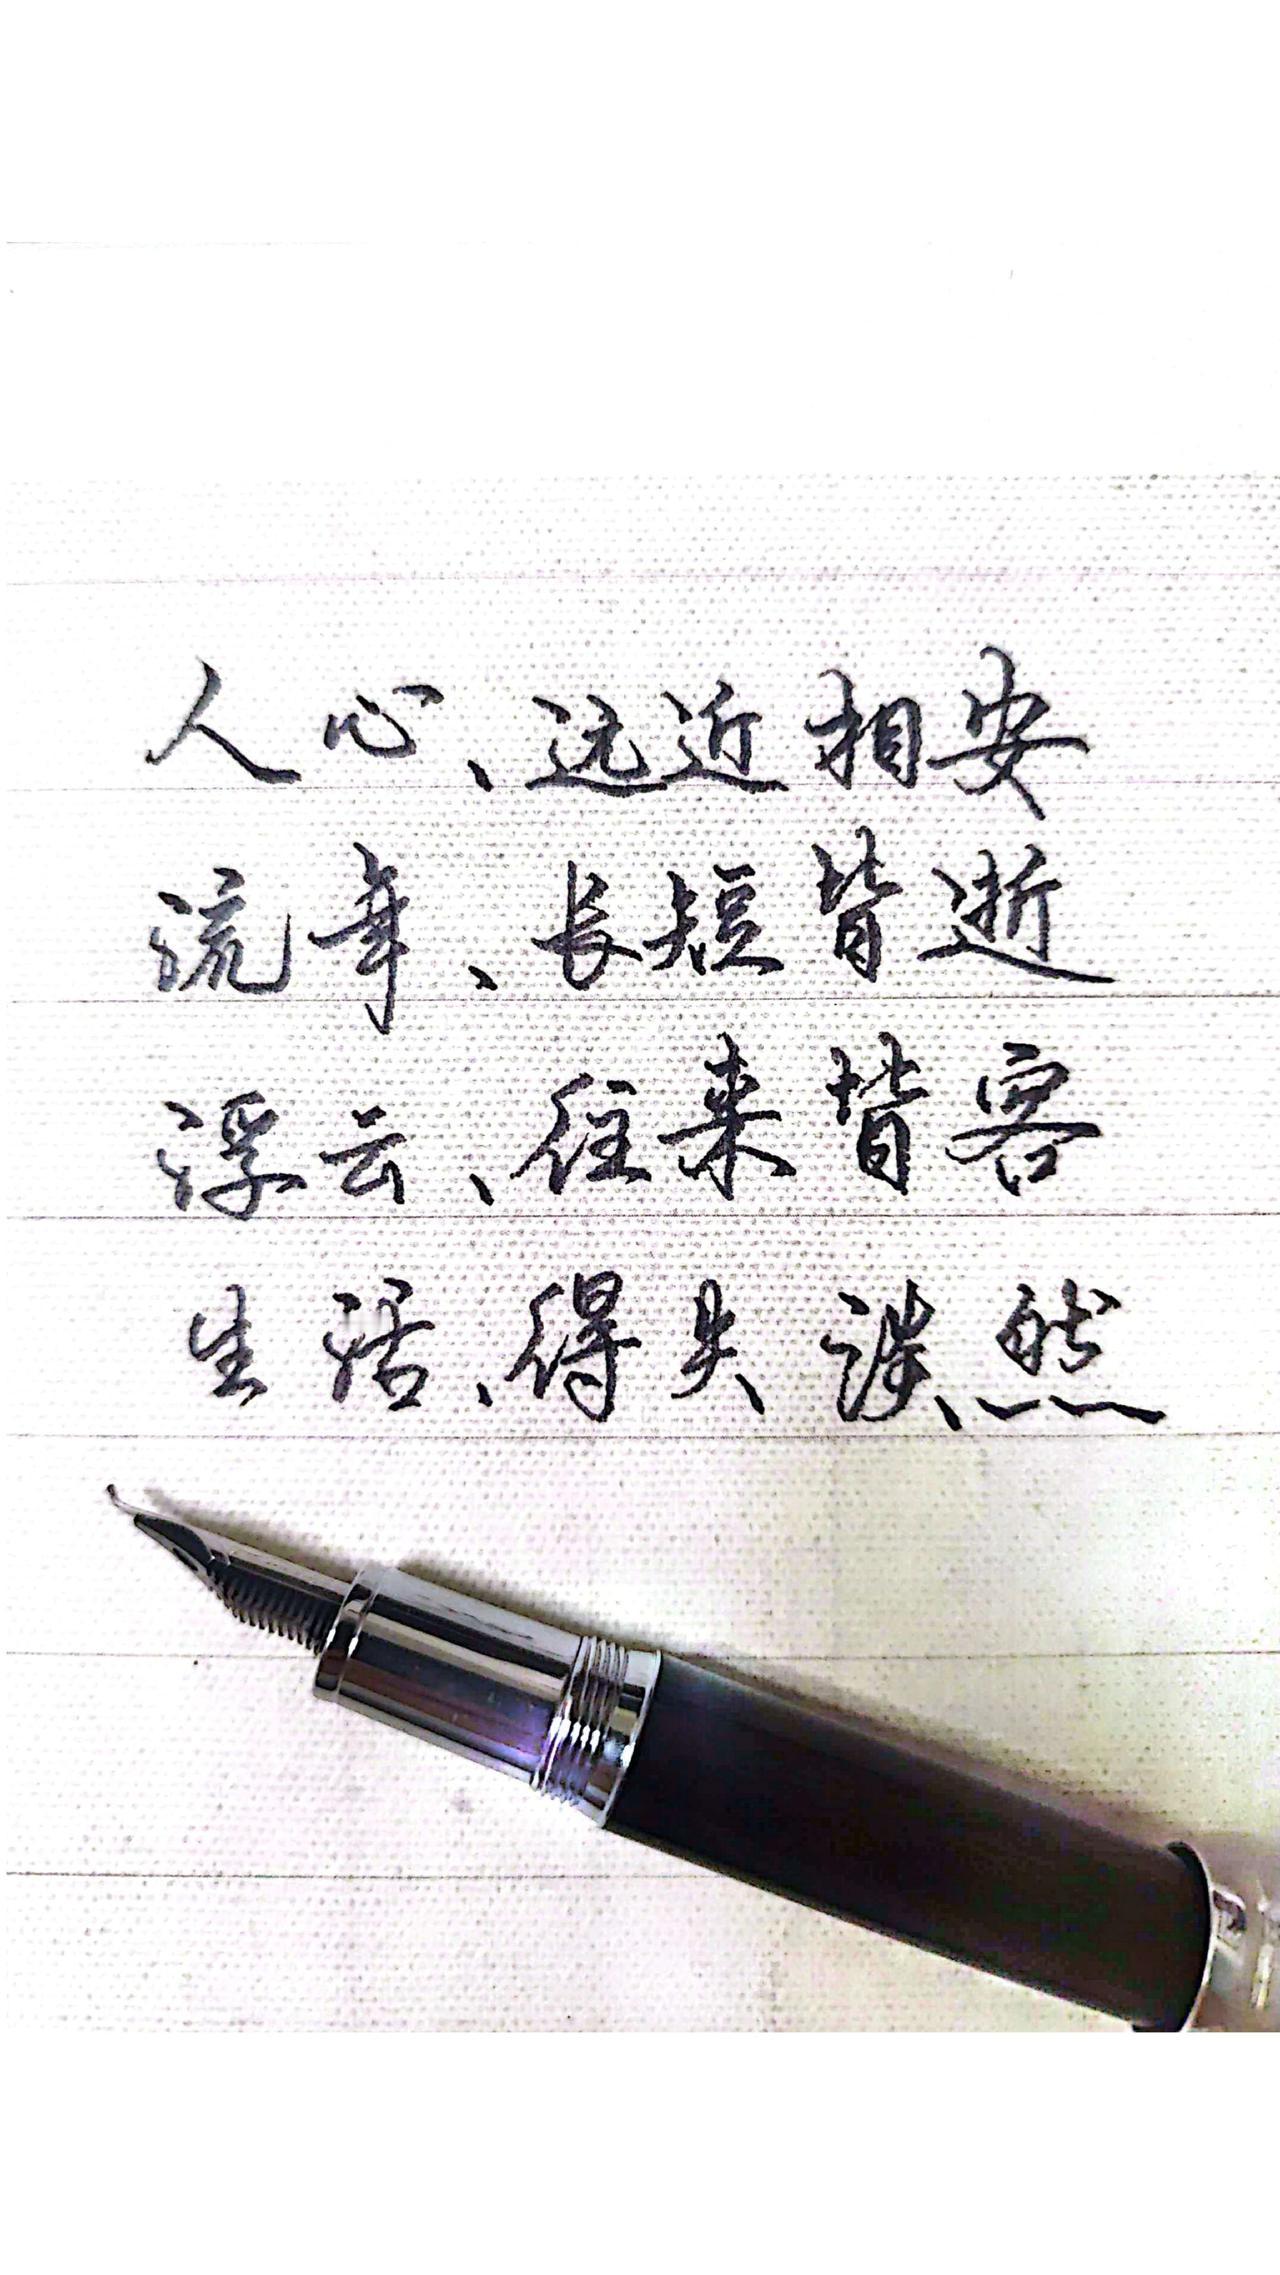 人心、远近相安
流年、长短皆逝
浮云、往来皆客
生活、得失淡然